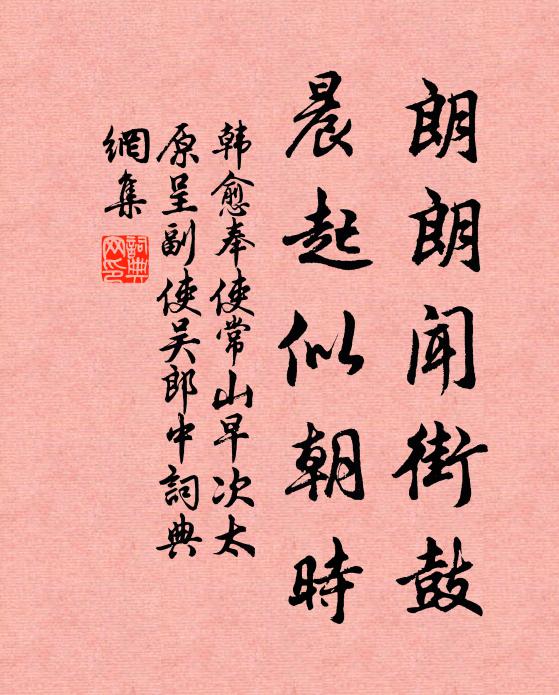 朗朗聞街鼓
晨起似朝時
韩愈奉使常山早次太
原呈副使吴郎中詞典
網集
詞典
网印